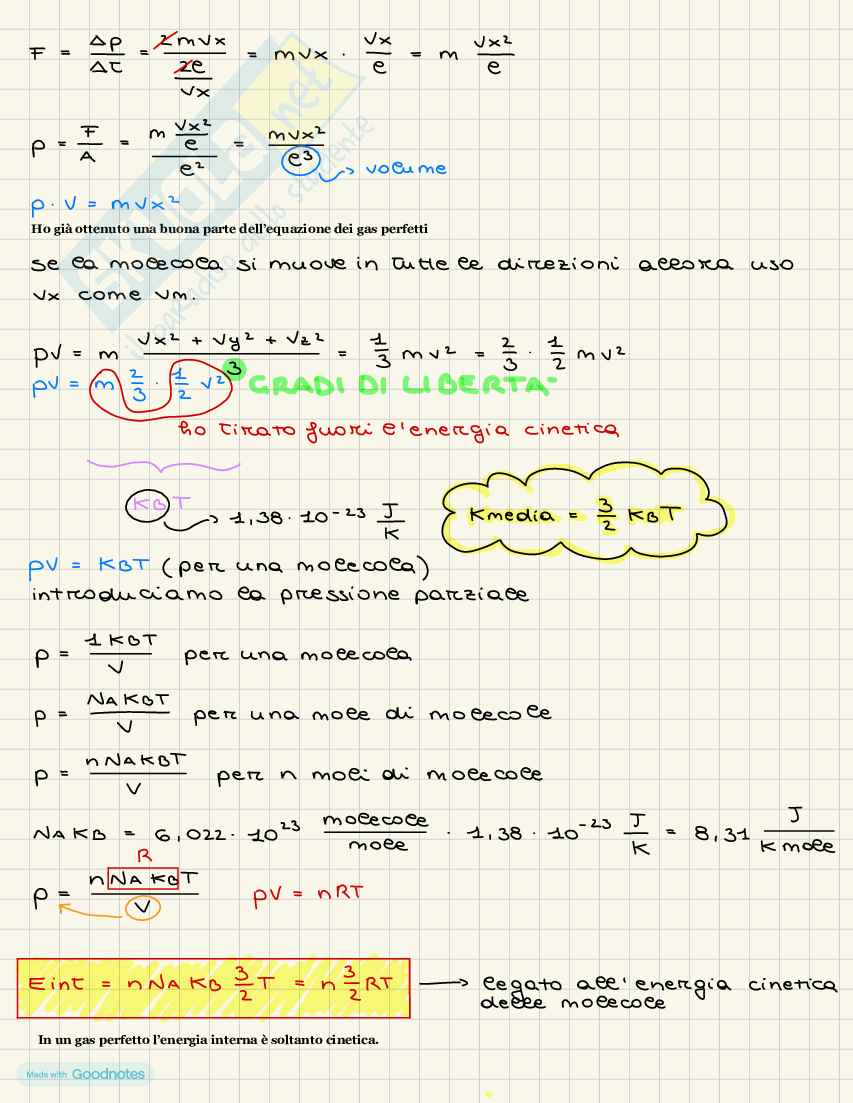 F = Δp/Δt = 2mvx / (2l/vx) = mvx · vx/l = m vx²/l
p = F/A = (m vx²/l) / l² = mvx²/l³ → volume
p · V = mvx²
Ho già ottenuto una buona parte dell'equazione dei gas perfetti
se la molecola si muove in tutte le direzioni allora uso
vx come vm.
pV = m (vx² + vy² + vz²)/3 = 1/3 mv² = 2/3 · 1/2 mv²
pV = m 2/3 · 1/2 v² GRADI DI LIBERTA'
ho tirato fuori l'energia cinetica
KBT → 1,38 · 10⁻²³ J/K Kmedia = 3/2 KBT
pV = KBT (per una molecola)
introduciamo la pressione parziale
p = 1KBT/V per una molecola
p = NAKBT/V per una mole di molecole
p = nNAKBT/V per n moli di molecole
NAKB = 6,022 · 10²³ molecole/mole · 1,38 · 10⁻²³ J/K = 8,31 J/K mole
R
p = nNAKBT/V pV = nRT
Eint = nNAKB 3/2 T = n 3/2 RT → legato all'energia cinetica
delle molecole
In un gas perfetto l'energia interna è soltanto cinetica.
Made with Goodnotes
SKUOLA.net
il paradiso dello studente